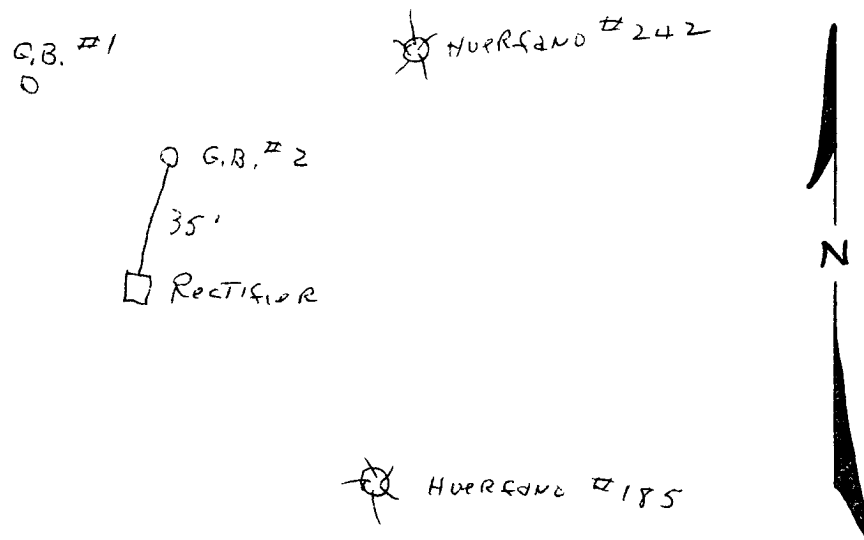 G.B. #1
HUERFANO #242
G.B. #2
35'
RECTIFIER
N
HUERFANO #185